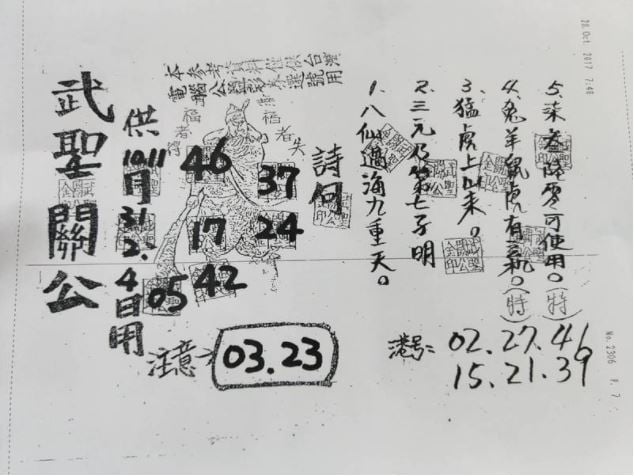 28 Oct 2017 7:48
本參考資料僅供台灣
電腦公益彩券選號用
武聖關公
供10.11月31.2.4日用
46
37
17
24
42
05
注意
03.23
詩句
1.八仙過海九重天。
2.三元乃第七子明
3.猛虎上山來。
4.兔羊鼠虎有玄机。(特)
5.柒叁陸零可使用。(特)
港号:
02.27.46
15.21.39
No. 2306 P. 7